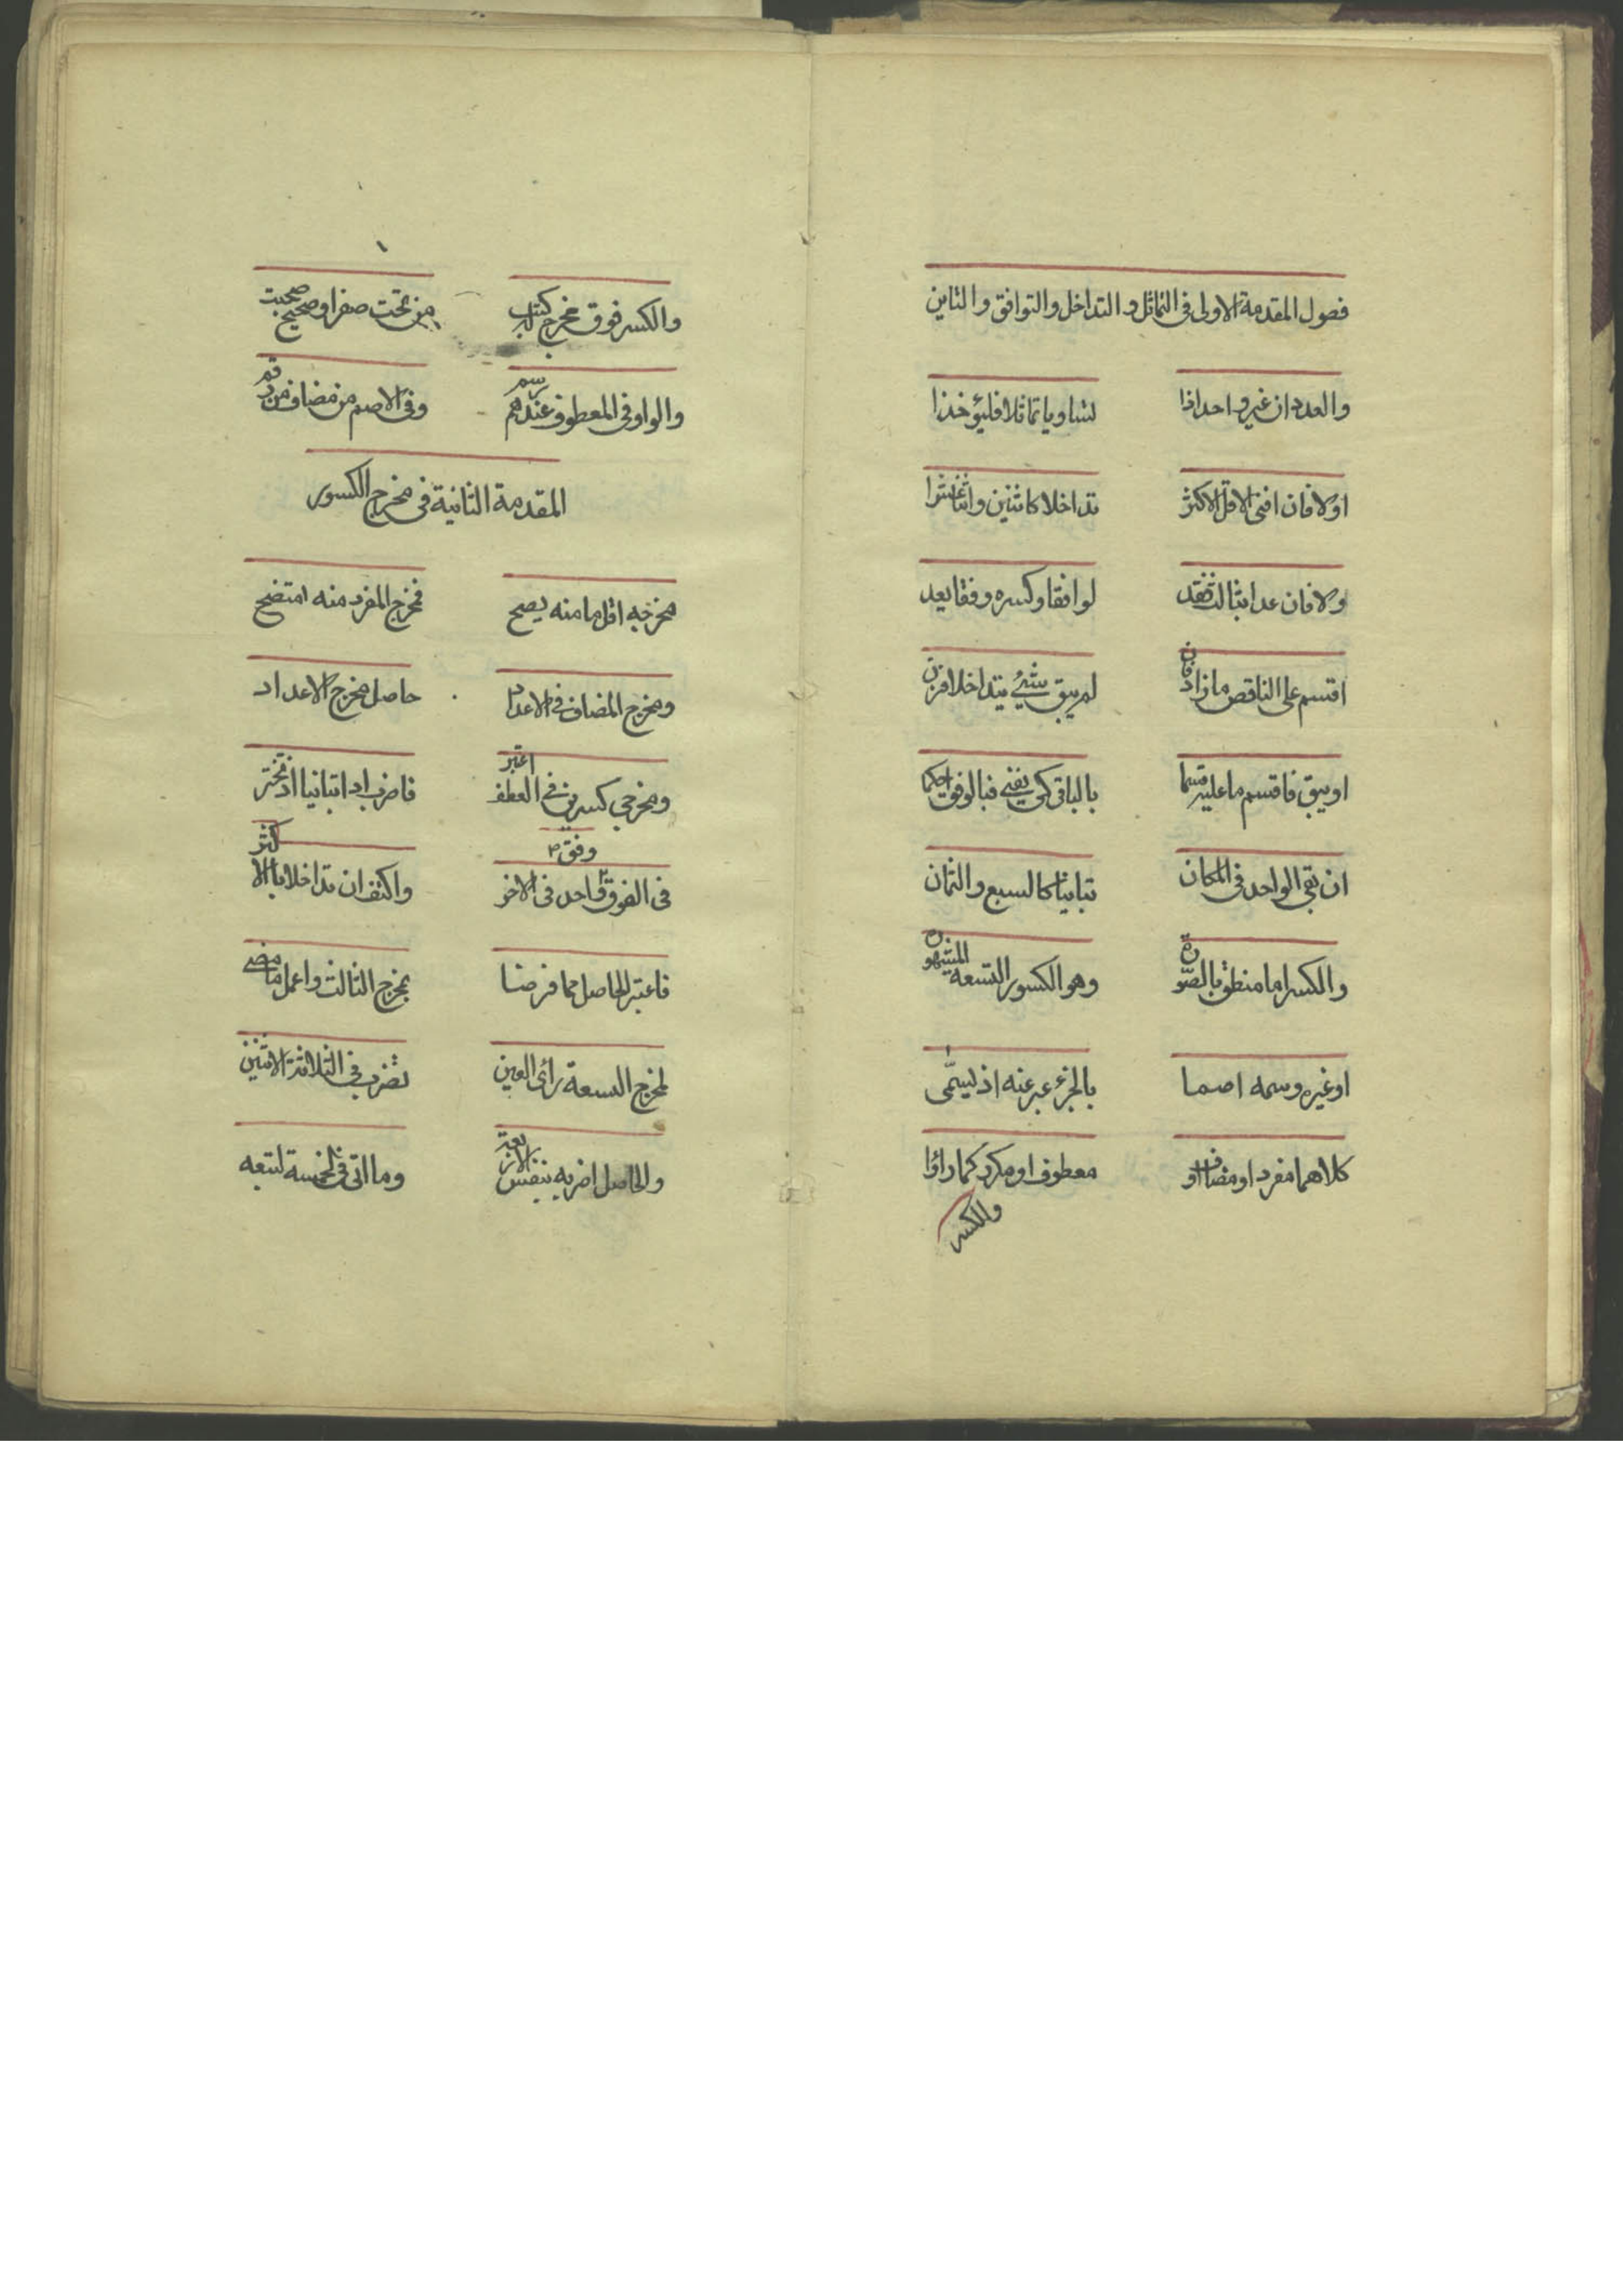 فصول المقدمة الاولى فى التماثل و التداخل والتوافق و التاين
والعددان غير واحد اذا لتساويا تماثلا فليؤخذا
اولا فان افنى الاقل الاكثر تداخلا كاثنين واثنا عشرا
ولا فان عدا بثالث فقد توافقا وكسره وفقا يعد
اقسم على الناقص ما زاد فان لم يبق شئ يتداخلا فزن
او يبق فاقسم ما عليه قسما بالباقى كى يفنى فبالوفق احكما
ان بقى الواحد فى المكان تباينا كالسبع والثمان
والكسر اما منطق بالصورة وهو الكسور التسعه المشهوره
او غيره وسمه اصما بالجزء عبر عنه اذ ليسمّى
كلاهما مفرد او مضاف او معطوف او مكرر كما راوا
والكسر
والكسر فوق مخرج كتب من تحت صفر او صحيح
والواو فى المعطوف عندهم رسم وفى الاصم من مضاف من
المقدمة الثانية فى مخرج الكسور
مخرجه اقل ما منه يصح فمخرج المفرد منه متضح
ومخرج المضاف فى الاعداد حاصل مخرج الاعداد
ومخرجى كسرين فى العطف اعتبر فاضرب اذا تباينا
وفق
فى الاخر واكتف ان تداخلا بالاكثر
فاعتبر الحاصل مما فرضا بمخرج الثالث واعمل ما مضى
لمخرج التسعة رأى العين تضرب فى الثلاثة الاثنين
والحاصل اضربه بنفس الاربعة وما اتى فى خمسة لتتبعه